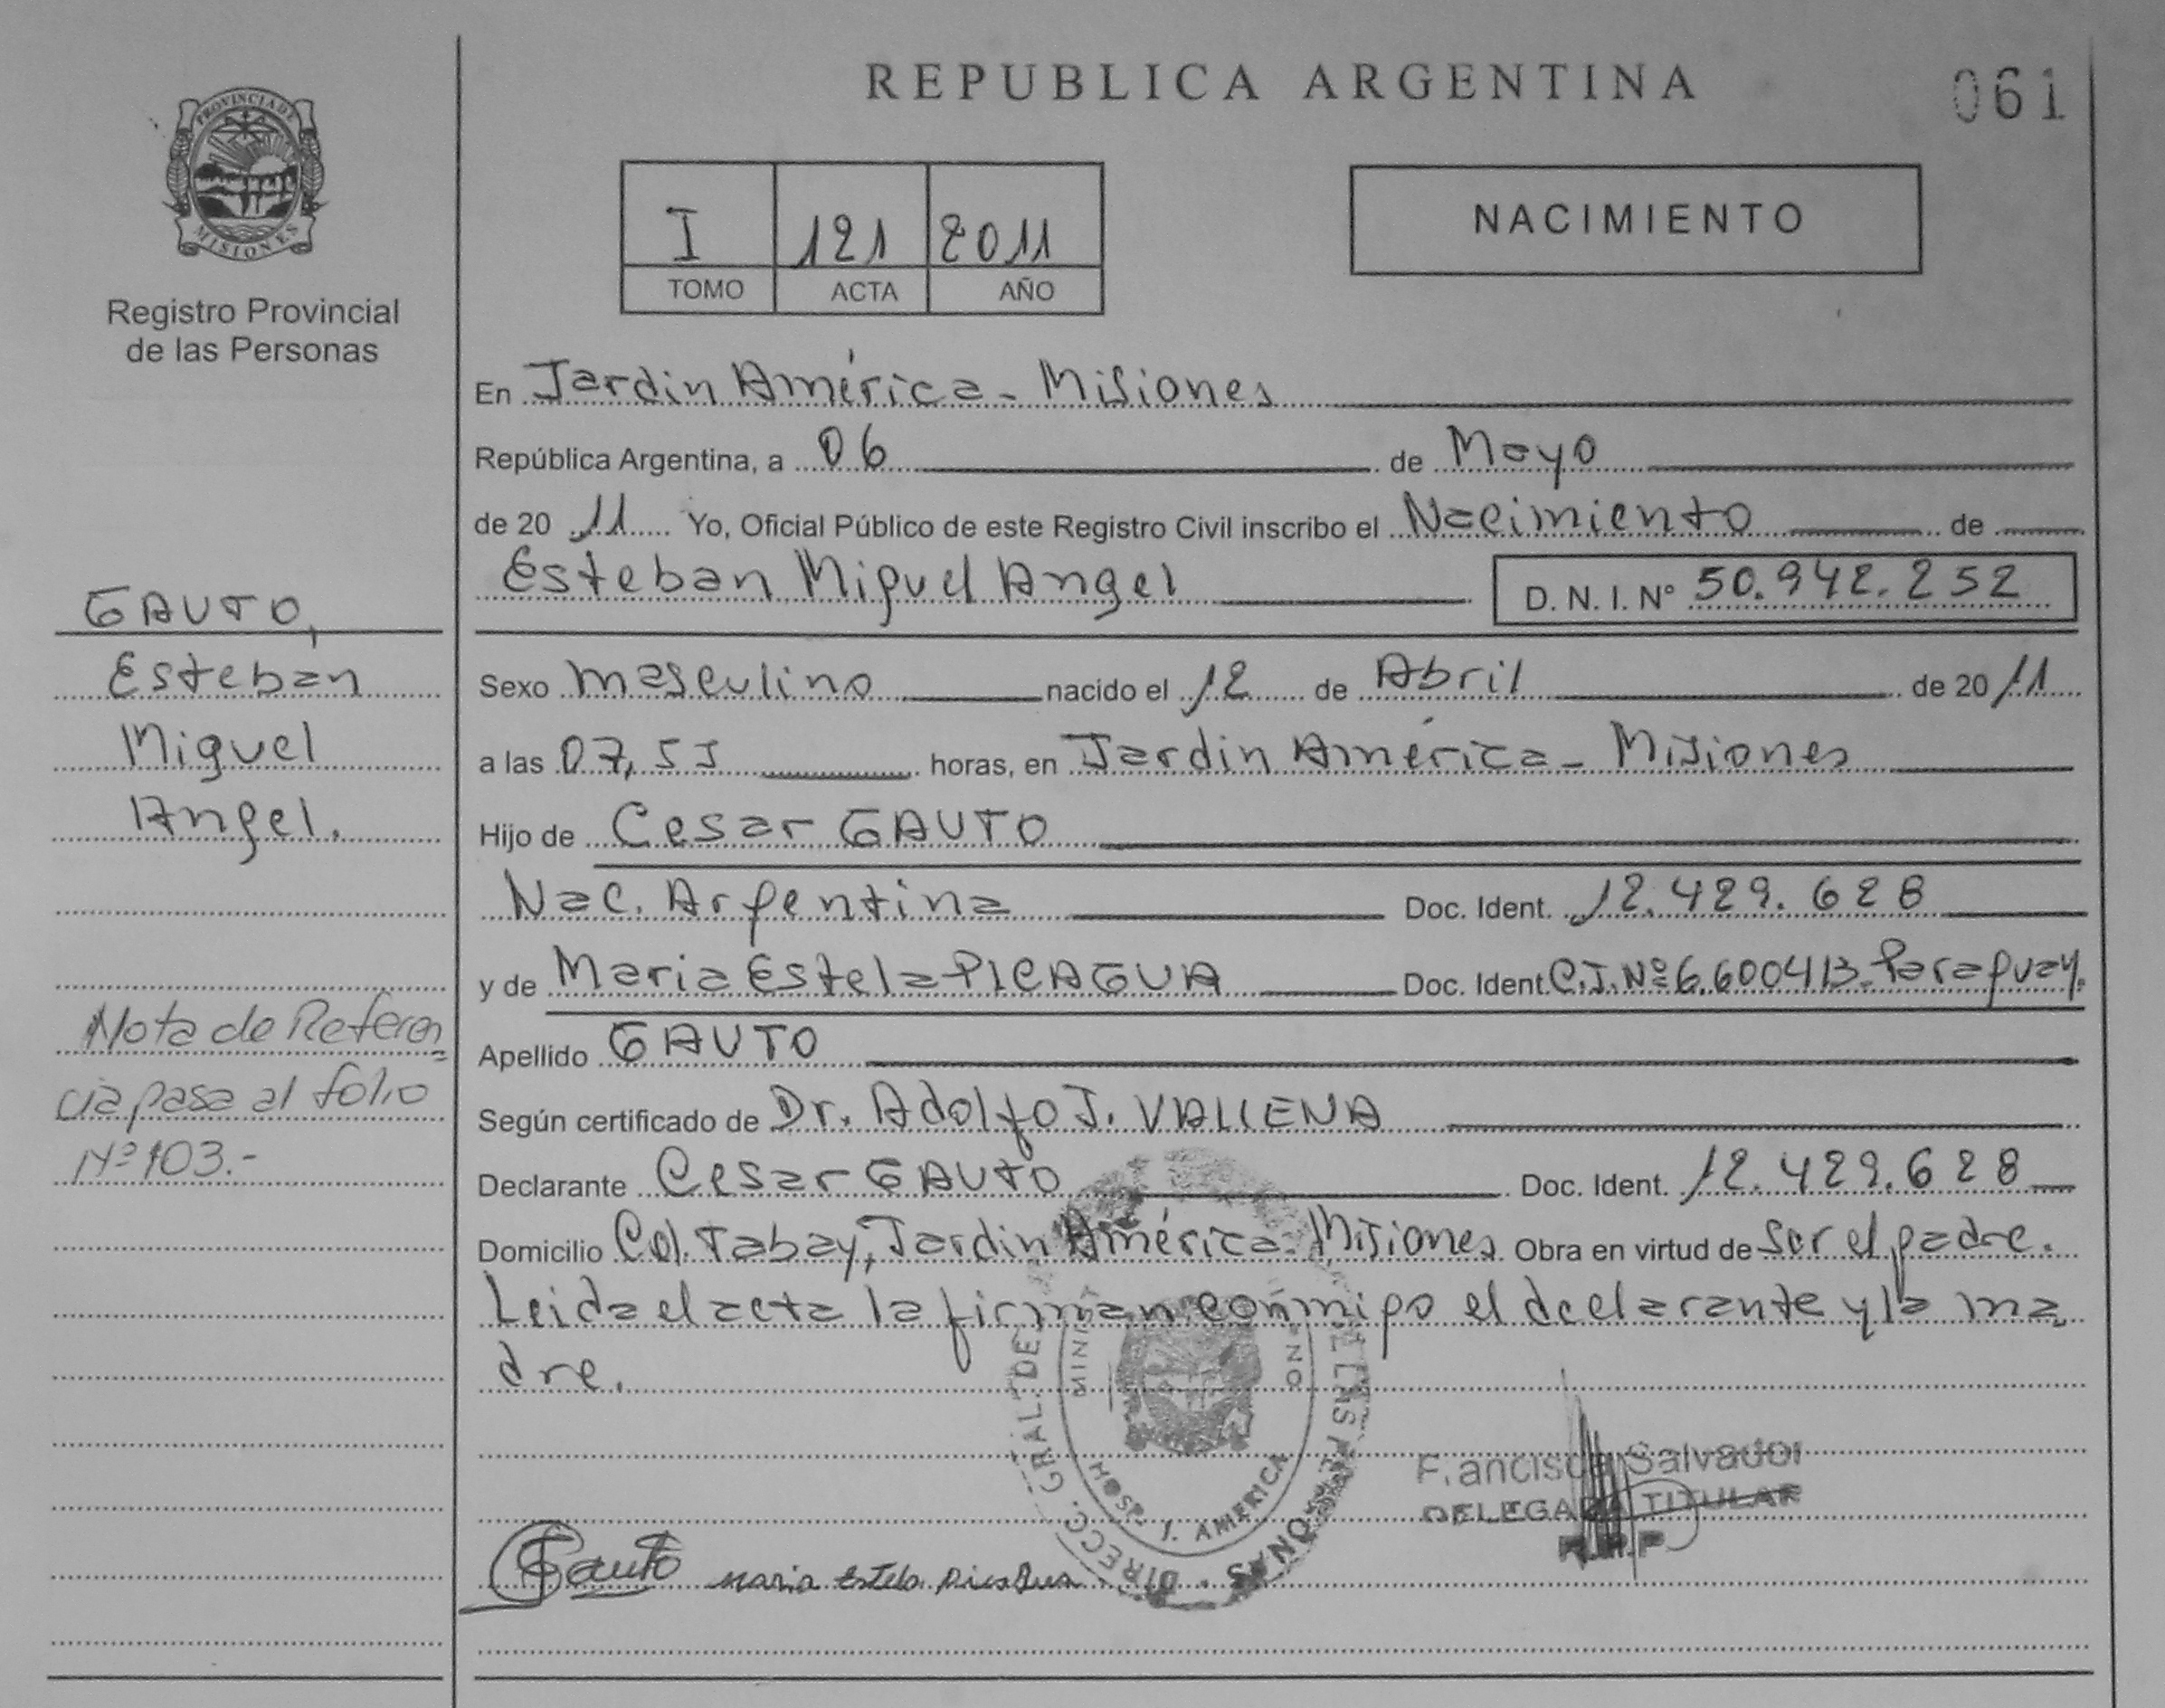 REPUBLICA ARGENTINA
061
PROVINCIA DE
MISIONES
Registro Provincial
de las Personas
I 121 2011
TOMO ACTA AÑO
NACIMIENTO
En Jardin América - Misiones
República Argentina, a 06 de Mayo
de 20 11 Yo, Oficial Público de este Registro Civil inscribo el Nacimiento de
Esteban Miguel Angel D. N. I. Nº 50.942.252
GAUTO,
Esteban
Miguel
Angel.
Sexo masculino nacido el 12 de Abril de 20 11
a las 07,55 horas, en Jardin América - Misiones
Hijo de Cesar GAUTO
Nac. Argentina Doc. Ident. 12.429.628
y de Maria Estela PICAGUA Doc. Ident. C.I. Nº 6.600413 - Paraguay.
Apellido GAUTO
Nota de Referen
cia pasa al folio
Nº 103.-
Según certificado de Dr. Adolfo J. VALLENA
Declarante Cesar GAUTO Doc. Ident. 12.429.628
Domicilio Col. Tabay, Jardin América - Misiones Obra en virtud de ser el padre.
Leida el acta la firman conmigo el declarante y la ma
dre.
DIRECC. GRAL. DE
HOSP. J. AMERICA
Salvador
TITULAR
Gauto Maria Estela